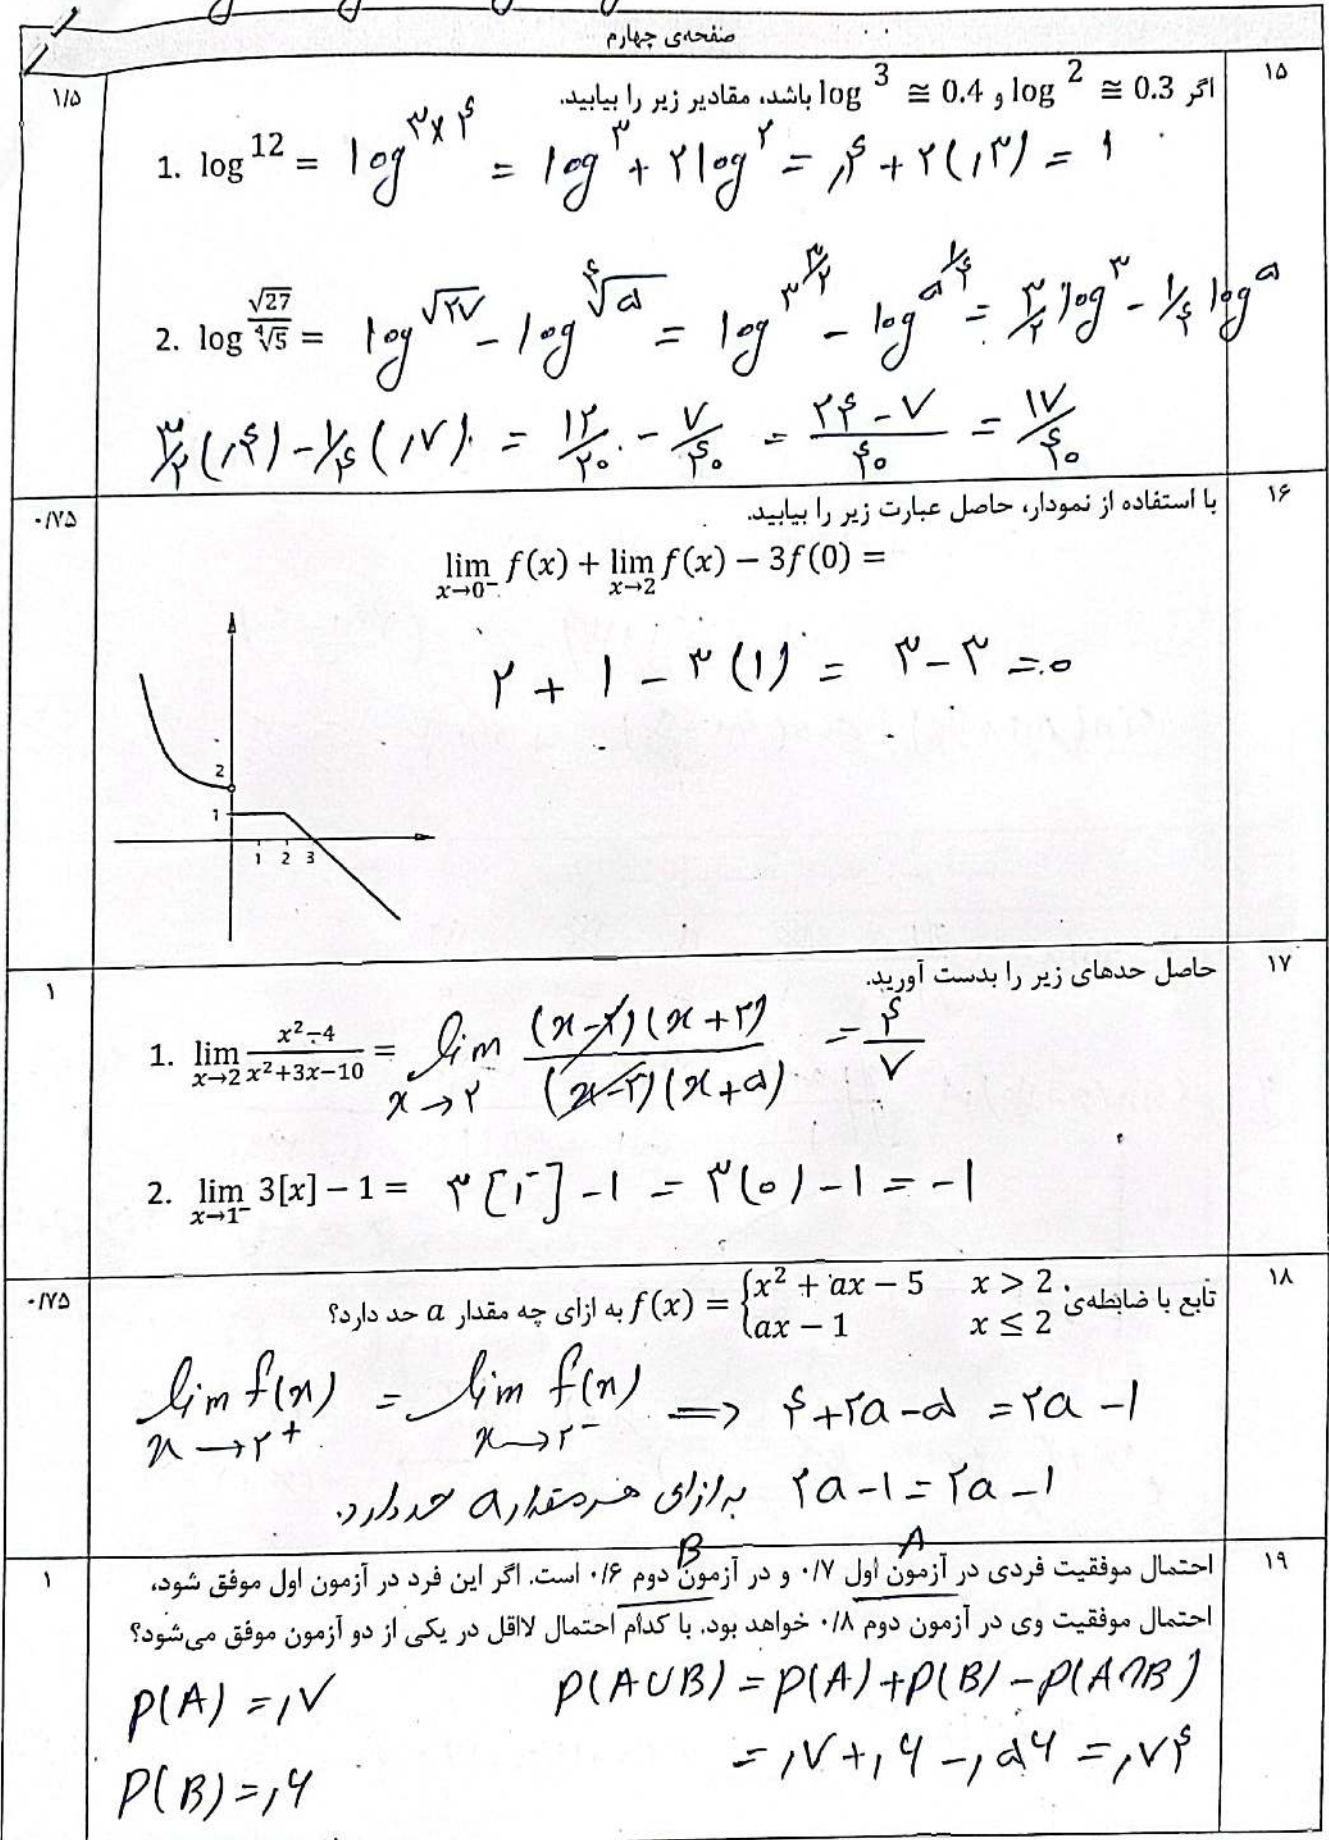 صفحه‌ی چهارم
۱۵
اگر log 2 ≅ 0.3 و log 3 ≅ 0.4 باشد، مقادیر زیر را بیابید.
۱/۵
1. log 12 = log ۳×۴ = log ۳ + ۲ log ۲ = ,۴ + ۲(,۳) = ۱
2. log √27/∜5 = log √۲۷ - log ∜۵ = log ۳^۳/۲ - log ۵^۱/۴ = ۳/۲ log ۳ - ۱/۴ log ۵
۳/۲ (,۴) - ۱/۴ (,۷) = ۱۲/۲۰ - ۷/۴۰ = ۲۴ - ۷/۴۰ = ۱۷/۴۰
۱۶
با استفاده از نمودار، حاصل عبارت زیر را بیابید.
۰/۷۵
lim x→0⁻ f(x) + lim x→2 f(x) − 3f(0) =
۲ + ۱ - ۳(۱) = ۳ - ۳ = ۰
2
1
1 2 3
۱۷
حاصل حدهای زیر را بدست آورید.
۱
1. lim x→2 x²−4/x²+3x−10 = lim x→۲ (x-۲)(x+۲)/(x-۲)(x+۵) = ۴/۷
2. lim x→1⁻ 3[x] − 1 = ۳[۱⁻] - ۱ = ۳(۰) - ۱ = -۱
۱۸
تابع با ضابطه‌ی f(x) = {x² + ax − 5 x > 2 به ازای چه مقدار a حد دارد؟
ax − 1 x ≤ 2
۰/۷۵
lim x→۲⁺ f(x) = lim x→۲⁻ f(x) => ۴+۲a-۵ = ۲a-۱
۲a-۱ = ۲a-۱ به ازای هر مقدار a حد دارد.
B A
۱۹
احتمال موفقیت فردی در آزمون اول ۰/۷ و در آزمون دوم ۰/۶ است. اگر این فرد در آزمون اول موفق شود،
۱
احتمال موفقیت وی در آزمون دوم ۰/۸ خواهد بود. با کدام احتمال لااقل در یکی از دو آزمون موفق می‌شود؟
P(A) = ,۷ P(A∪B) = P(A)+P(B)-P(A∩B)
= ,۷+,۶-,۵۶ = ,۷۴
P(B) = ,۶